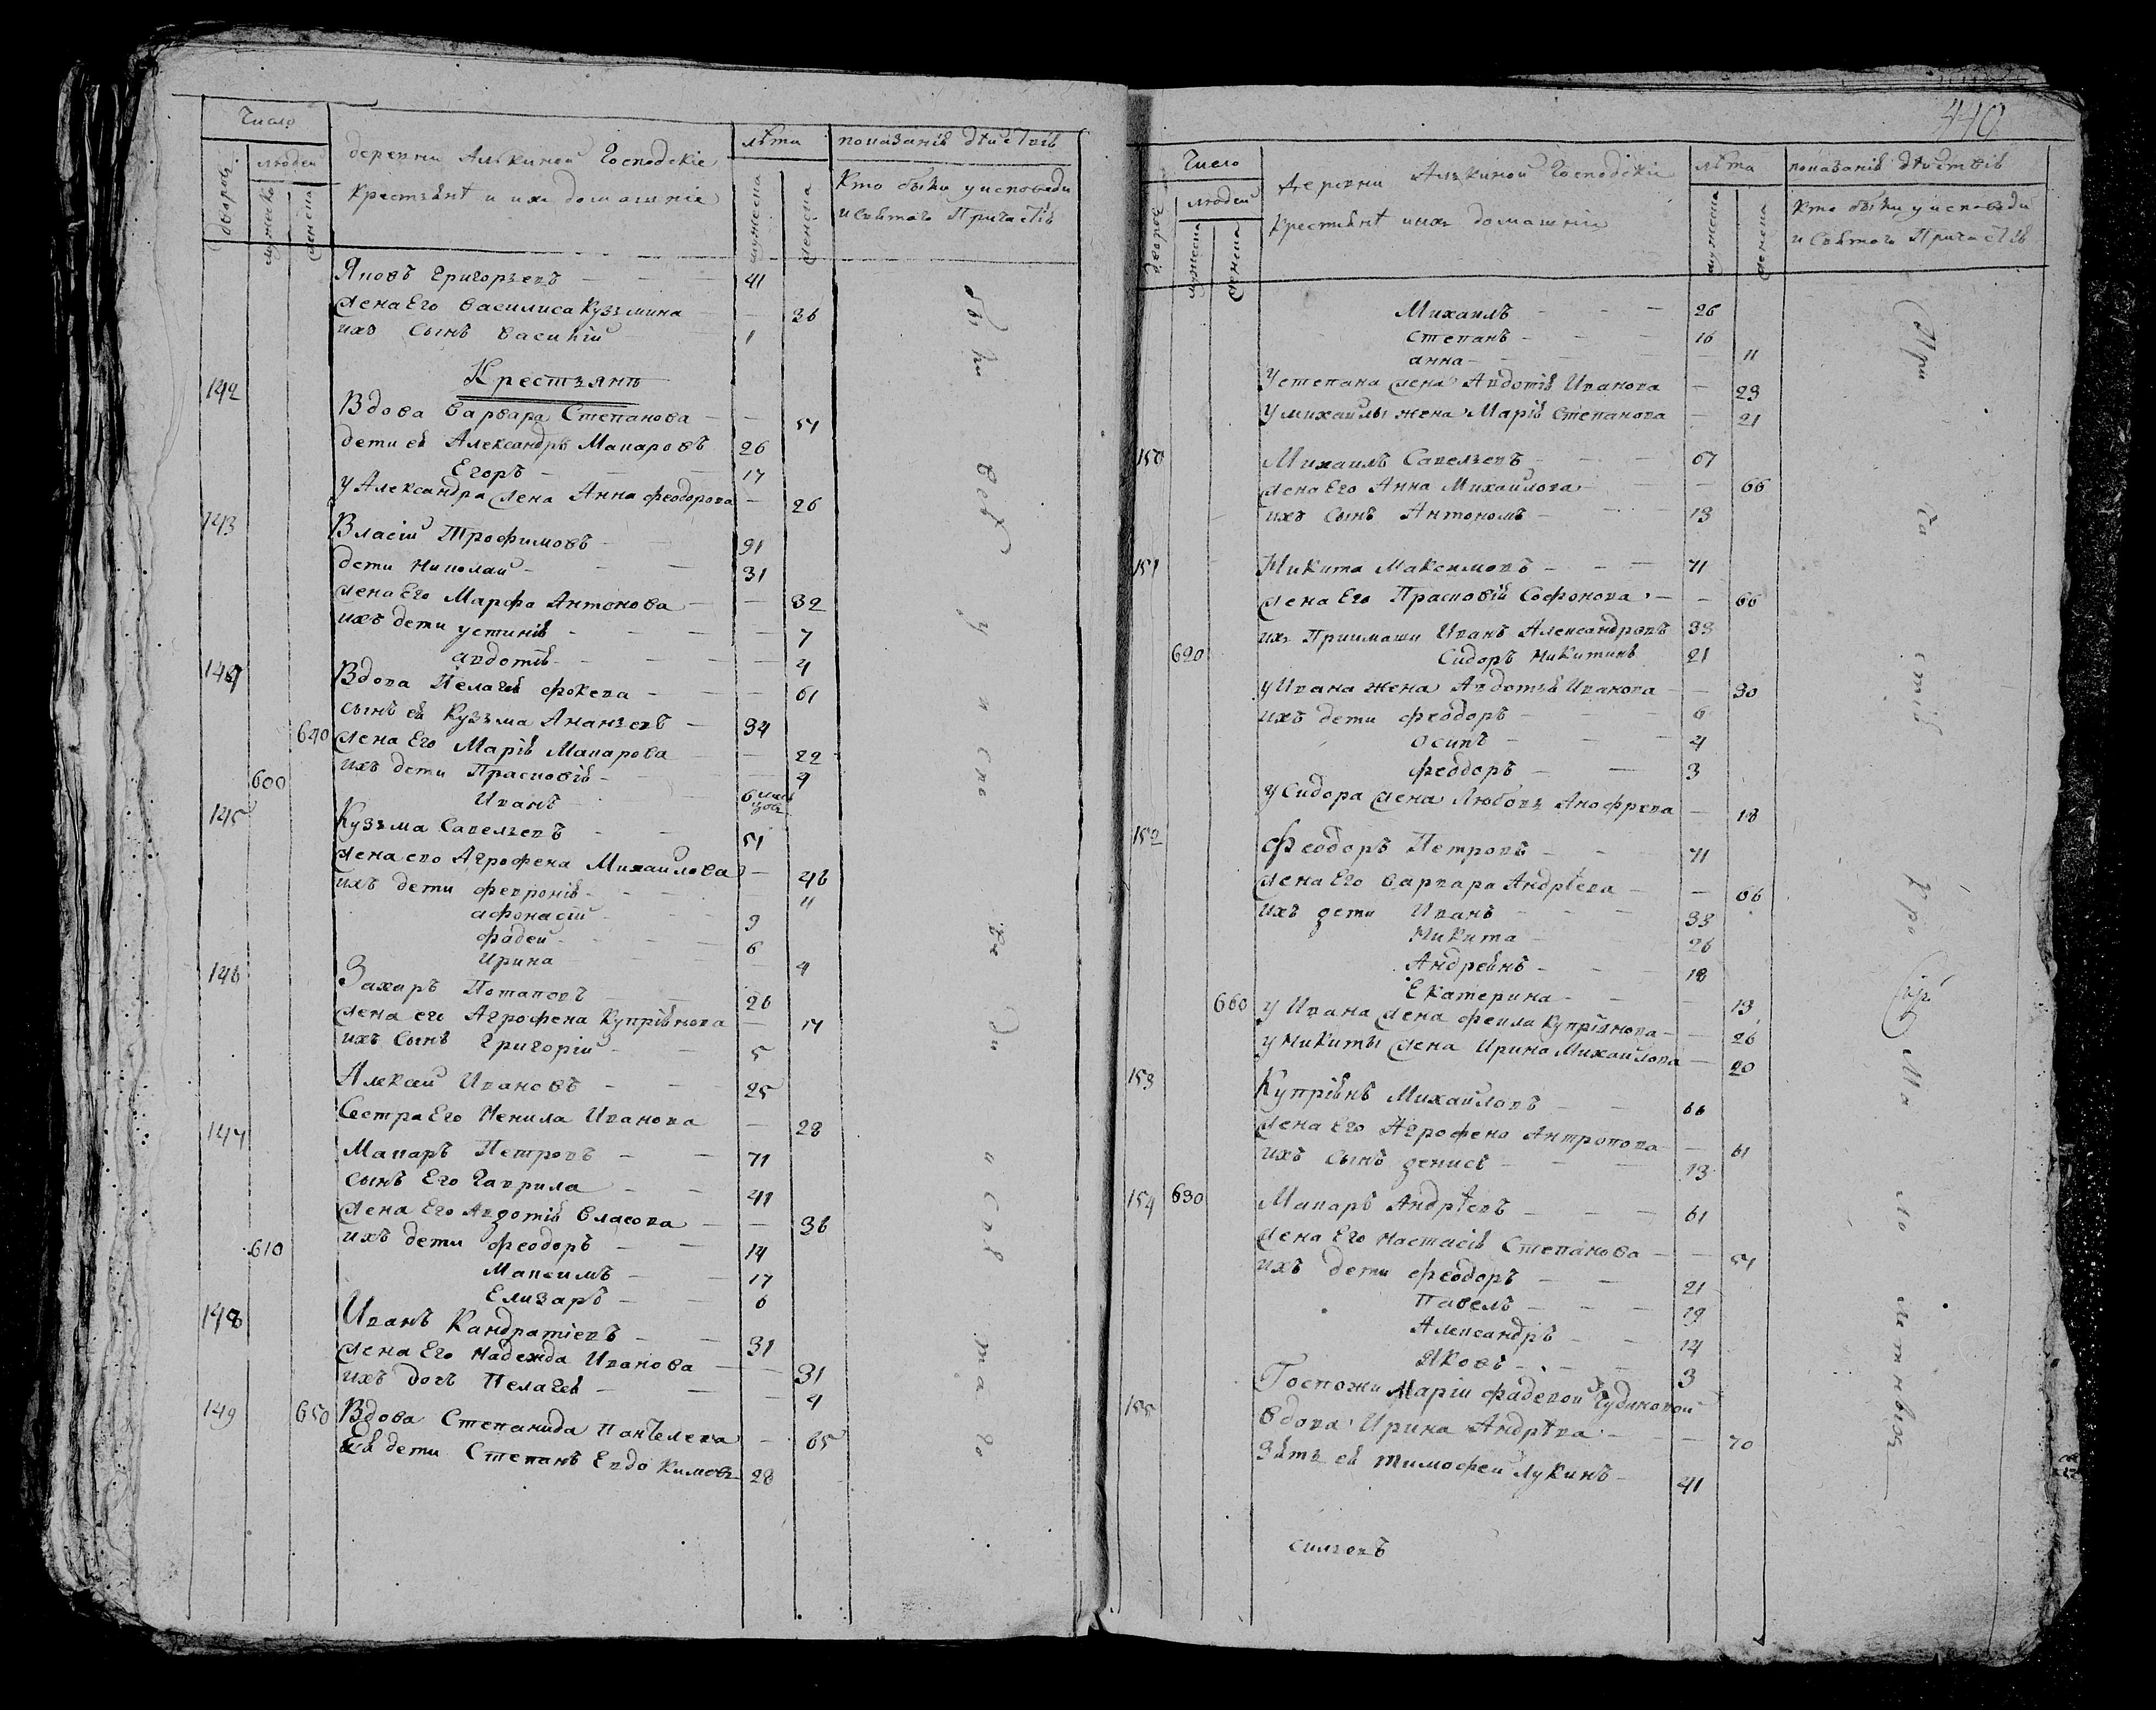 Число
людей
деревни Алькиной Господскіе
крестьянѣ и ихъ домашніе
лѣта
показаніе дѣйствъ
Кто были у исповеди
и святаго Причастія
дворовъ
мужеска
женска
мужеска
женска
Яковъ Григорьевъ 41
жена Его Василиса Кузьмина 36
ихъ сынъ Василій 1
Крестьянъ
142
Вдова Варвара Степанова 51
дети ея Александръ Макаровъ 26
Егоръ 17
у Александра жена Анна Феодорова 26
143
Власій Трофимовъ 91
дети Николай 31
жена Его Марфа Антонова 32
ихъ дети устинія 7
авдотія 4
144
Вдова Пелагея Фокева 61
сынъ ея Кузьма Ананьевъ 34
640 жена Его Марія Макарова 22
ихъ дети Прасковія 4
600 Иванъ 6
145
Кузьма Савельевъ 51
жена ево Агрофена Михайлова 46
ихъ дети февронія 11
афонасій 9
фадей 6
Ирина 4
146
Захаръ Потаповъ 26
жена его Агрофена Купріянова
ихъ сынъ Григорій 5
Алексей Ивановъ 25
Сестра Его Ненила Иванова 28
147
Макаръ Петровъ 71
сынъ Его Гаврила 41
жена Его Авдотія Власова 36
610 ихъ дети феодоръ 14
Максимъ 17
Елизаръ 6
148
Иванъ Кандратіевъ 31
жена Его Надежда Иванова 31
ихъ доч Пелагея 4
149 650 Вдова Степанида Пантелева 65
Ея дети Степанъ Евдокимовъ 28
были всѣ у исповеди и св таго
440
Число
людей
деревни Алькиной Господскіе
крестьянѣ и ихъ домашніе
лѣта
показаніе дѣйствъ
Кто были у исповеди
и Святаго Причастія
дворовъ
мужеска
женска
мужеска
женска
Михаилъ 26
Степанъ 16
анна 11
У степана жена Авдотія Иванова 23
У михаилы жена Марія Степанова 21
150 Михаилъ Савельевъ 67
жена Его Анна Михайлова 66
ихъ сынъ Антономъ 13
151 Никита Максимовъ 71
жена Его Прасковія Софонова 66
ихъ Приимаши Иванъ Александровъ 33
620 Сидоръ Никитинъ 21
у Ивана жена Авдотья Иванова 30
ихъ дети феодоръ 6
осипъ 4
феодоръ 3
у Сидора жена Любовь Анофрева 18
152
Феодоръ Петровъ 71
жена Его Варвара Андрѣева 66
ихъ дети Иванъ 33
Никита 26
Андреянъ 18
Екатерина 13
660 у Ивана жена фекла Купріянова 26
у Никиты жена Ирина Михайлова 20
153
Купріянъ Михайловъ 66
жена Его Агрофена Антропова 61
ихъ сынъ денисъ 13
154 630 Макаръ Андрѣевъ 61
жена Его Настасія Степанова 51
ихъ дети феодоръ 21
Павелъ 19
Александръ 14
Яковъ 3
Госпожи Маріи Фадевой Чудиновой
155 вдова Ирина Андрѣва 70
Зять ея тимофей Лукинъ 41
При ча стія кро мѣ ма ло летнихъ